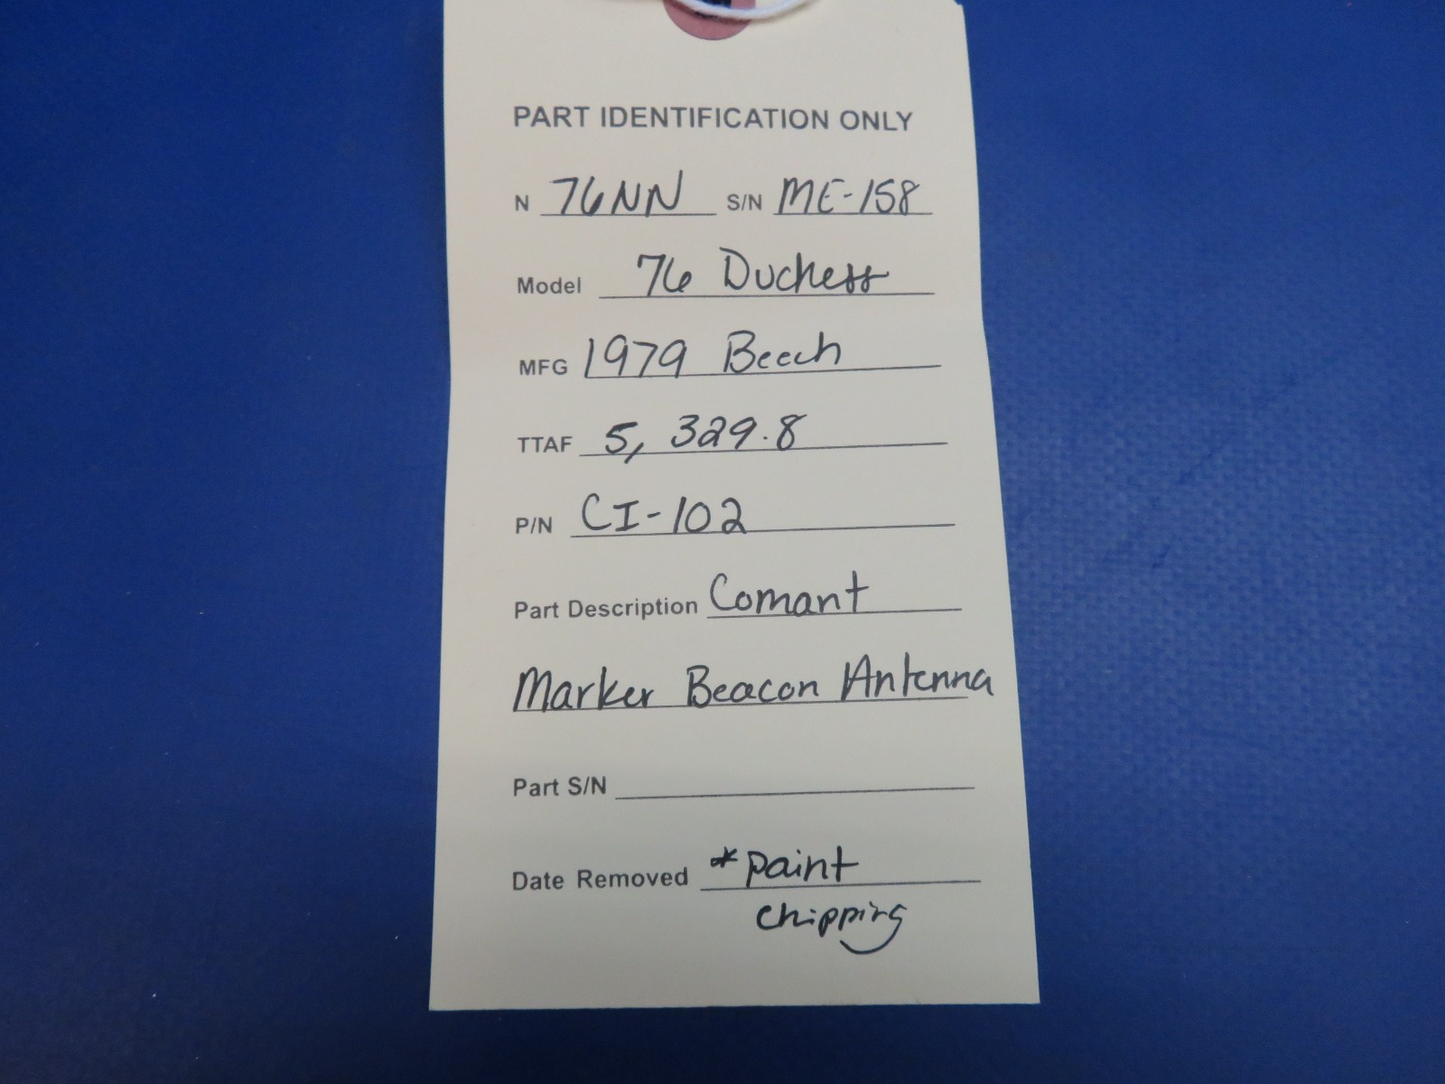 PART IDENTIFICATION ONLY
N 76NN S/N ME-158
Model 76 Duchess
MFG 1979 Beech
TTAF 5,329.8
P/N CI-102
Part Description Comant
Marker Beacon Antenna
Part S/N
Date Removed *paint
chipping